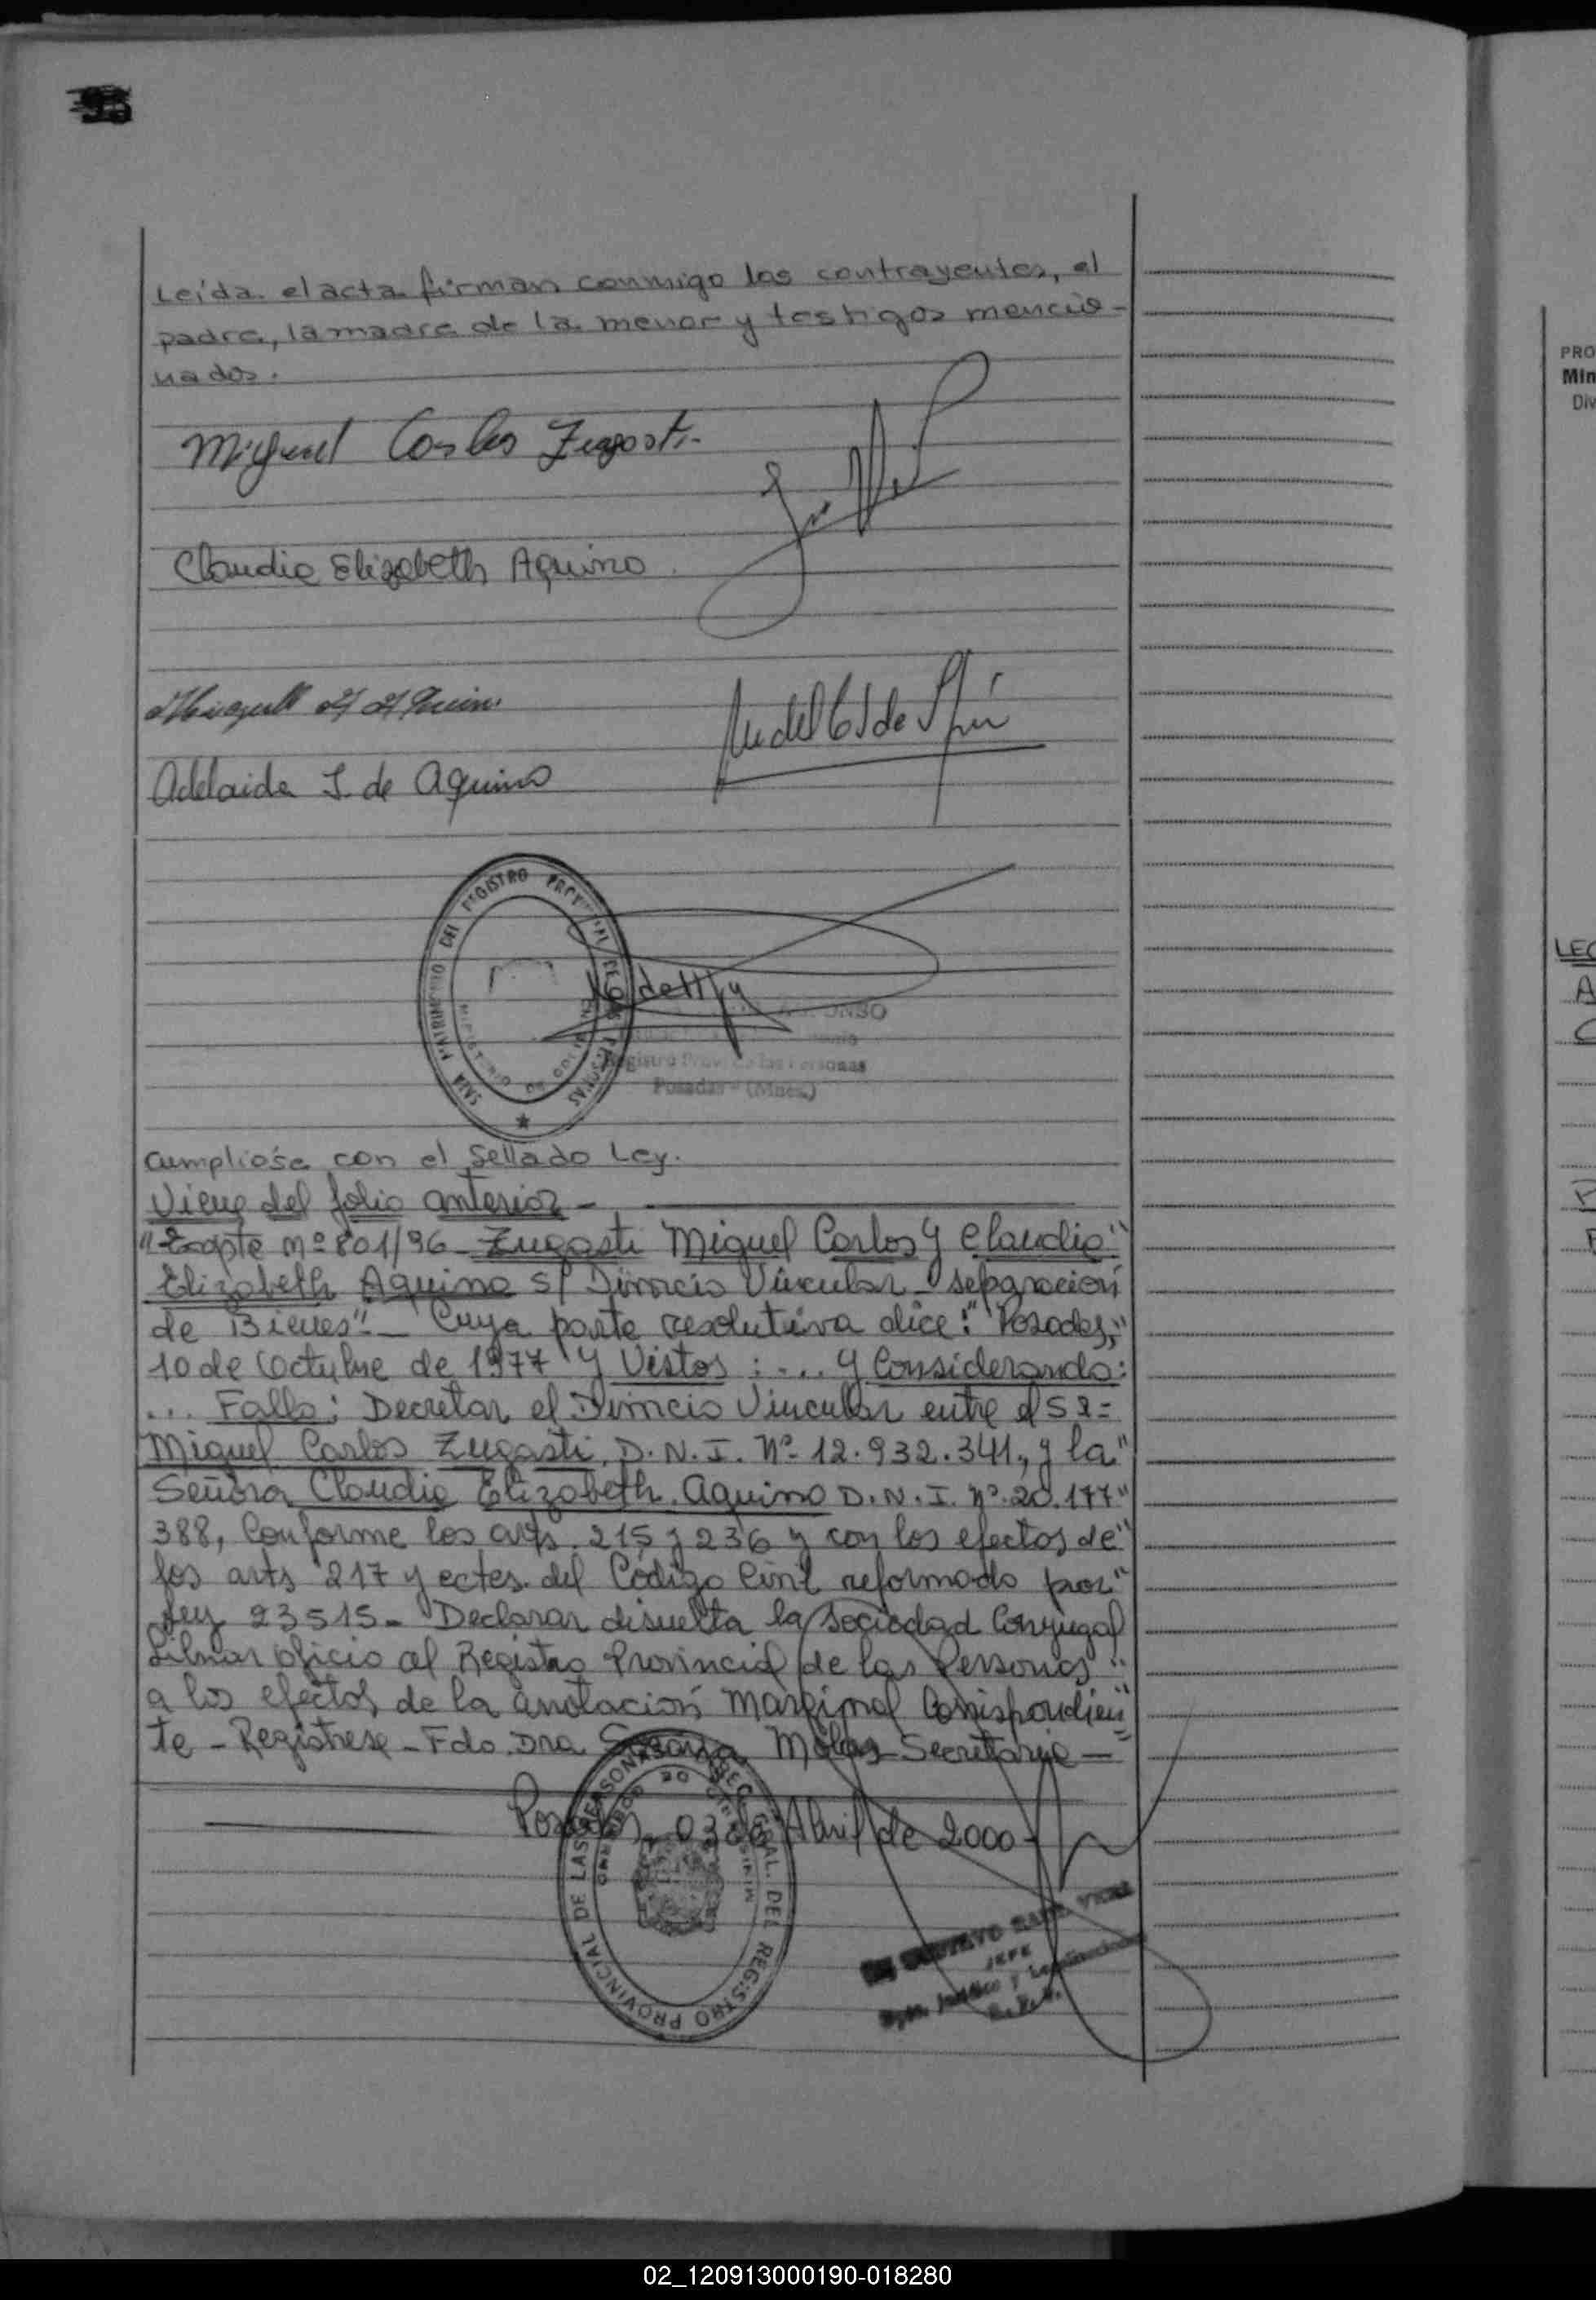 Leída el acta firman conmigo los contrayentes, el
padre, la madre de la menor y testigos mencio-
nados.
Miguel Carlos Zugasti
Claudia Elizabeth Aquino
Adelaida J. de Aquino
SALA MATRIMONIO DEL REGISTRO PROVINCIAL DE LAS PERSONAS
Registro Prov. de las Personas
Posadas - (Mnes.)
Cumplióse con el Sellado Ley.
Viene del folio anterior -
"Expte nº 801/96 - Zugasti Miguel Carlos y Claudia"
Elizabeth Aquino s/ Divorcio Vincular - separación
de Bienes". - Cuya parte resolutiva dice: "Posadas,"
10 de Octubre de 1977 Y Vistos: ... Y Considerando:
... Fallo: Decretar el Divorcio Vincular entre el Sr=
Miguel Carlos Zugasti, D.N.I. Nº 12.932.341, y la"
Señora Claudia Elizabeth Aquino D.N.I. nº 20.177"
388, Conforme los arts. 215 y 236 y con los efectos de"
los arts 217 y cctes. del Código Civil reformado por"
Ley 23515 - Declarar disuelta la Sociedad Conyugal
Librar oficio al Registro Provincial de las Personas"
a los efectos de la anotación Marginal Correspondien"
te - Regístrese - Fdo. Dra Molas - Secretaria -
Posadas, 03 de Abril de 2000 -
GRAL. DEL REGISTRO PROVINCIAL DE LAS PERSONAS
JEFE
PRO
Min
Div
LEC
A
C
P
02_120913000190-018280